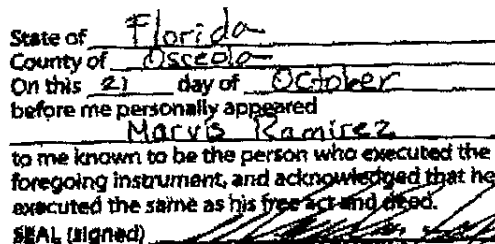 State of Florida
County of Osceola
On this 21 day of October
before me personally appeared
Marvis Ramirez
to me known to be the person who executed the
foregoing instrument, and acknowledged that he
executed the same as his free act and deed.
SEAL (signed)